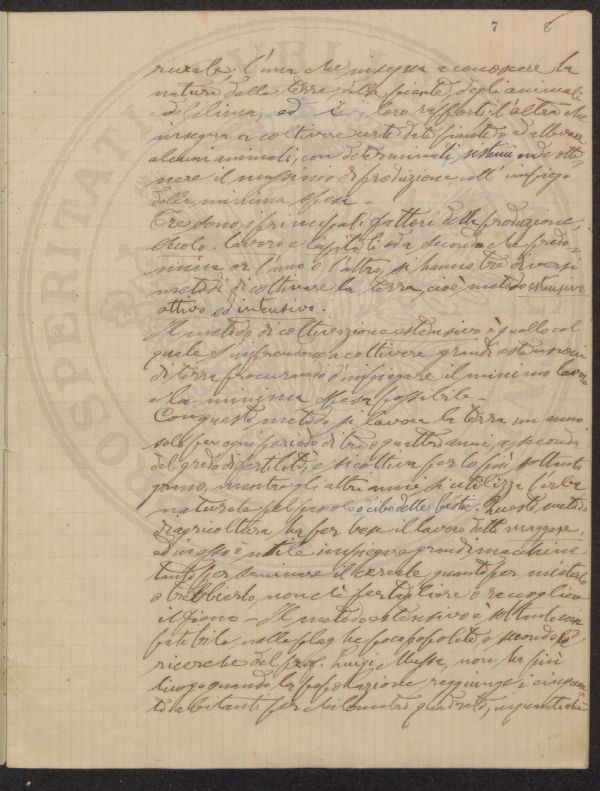 7 6
rurale, l'una che insegna a conoscere la
natura delle terre, delle piante, degli animali
e del clima, ed i loro rapporti l'altra che
insegna a coltivare certe date piante ed allevare
alcuni animali, con determinati sistemi onde otte-
nere il massimo di produzione coll' impiego
della minima spesa -
Tre sono i principali fattori della produzione,
Suolo. Lavoro e Capitali ed a seconda che predo-
mina or l'uno o l'altro, si hanno tre diversi
metodi di coltivare la terra, cioè metodo estensivo
attivo ed intensivo.
Il metodo di coltivazione estensivo è quello col
quale s'imprendono a coltivare grandi estensioni
di terra procurando d'impiegare il minimo lavoro
e la minima spesa possibile -
Con questo metodo si lavora la terra un anno
solo per ogni periodo di tre o quattro anni, a seconda
del grado di fertilità, e si coltiva per lo più soltanto
grano, mentre gli altri anni si utilizza l'erba
naturale pel pascolo o cibo delle bestie. Questo metodo
di agricoltura ha per base il lavoro detto maggese,
ed in esso è utile impiegare grandi macchine
tanto per seminare il cereale quanto per mieterlo
o trebbiarlo, nonchè per tagliare o raccogliere
il fieno - Il metodo estensivo è soltanto com-
patibile nelle plaghe poco popolate, e secondo le
ricerche del prof. Luigi Messa, non ha più
luogo quando la popolazione raggiunge i cinquan-
ta abitanti per chilometro quadrato, inquantochè